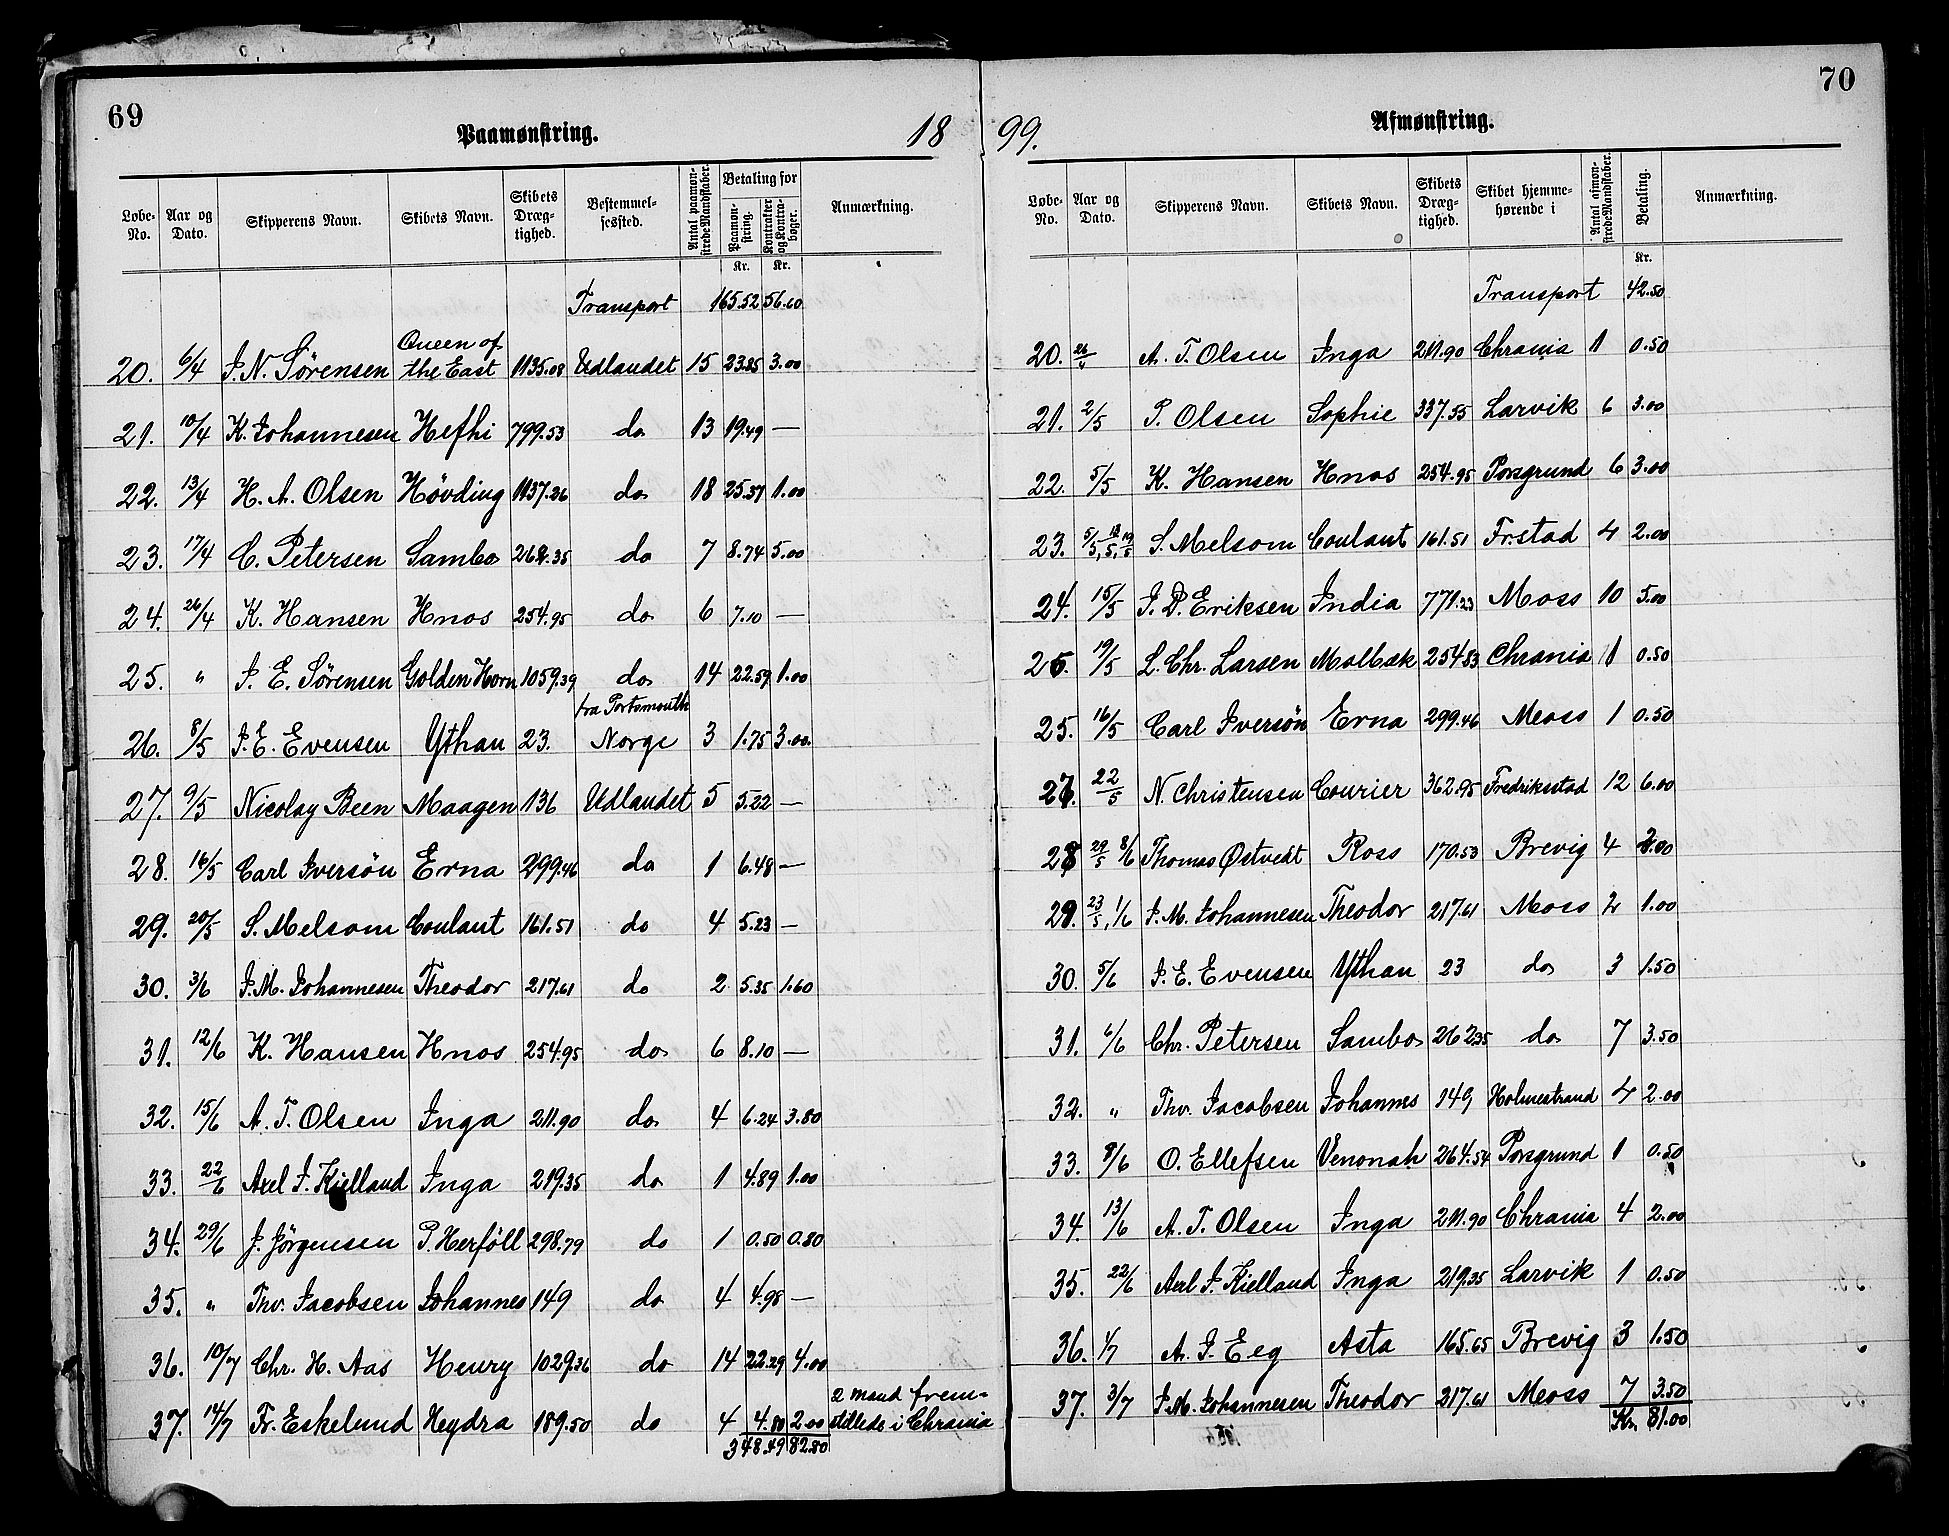 69
Paamønstring.
18
Løbe-No. | Aar og Dato. | Skipperens Navn. | Skibets Navn. | Skibets Dræg-tighed. | Bestemmel-sessted. | Antal paamøn-strede Mandskaber. | Betaling for Paamøn-string. Kr. | Kontrakter og Kontra-bøger. Kr. | Anmærkning.
Transport 165.52 56.60
20. 6/4 J. N. Sørensen Queen of the East 1135.08 Udlandet 15 23.85 3.00
21. 10/4 K. Johannesen Hefhi 799.53 do 13 19.49 —
22. 13/4 H. A. Olsen Høvding 1137.26 do 18 25.37 1.00
23. 17/4 C. Petersen Sambo 262.35 do 7 8.74 5.00
24. 26/4 K. Hansen Hnos 254.95 do 6 7.10 —
25. " J. E. Sørensen Golden Horn 1059.39 do 14 22.59 1.00
26. 8/5 J. E. Evensen Ythan 23. fra Portsmouth Norge 3 1.75 3.00.
27. 9/5 Nicolay Been Maagen 136 Udlandet 5 5.22 —
28. 16/5 Carl Iversøn Erna 299.46 do 1 6.48 —
29. 20/5 S. Melsom Coulant 161.51 do 4 5.23 —
30. 3/6 J. M. Johannesen Theodor 217.61 do 2 5.35 1.60
31. 12/6 K. Hansen Hnos 254.95 do 6 8.10 —
32. 15/6 A. T. Olsen Inga 211.90 do 4 6.24 3.80
33. 22/6 Axel J. Kielland Inga 219.35 do 1 4.89 1.00
34. 29/6 J. Jørgensen P. Herföll 298.79 do 1 0.50 0.80
35. " Thv. Jacobsen Johannes 149 do 4 4.98 —
36. 10/7 Chr. H. Aas Henry 1029.36 do 14 22.29 4.00
37. 14/7 Fr. Eskelund Heydra 189.50 do 4 4.80 2.00 2 mand frem-stillede i Chrania
348.49 82.80
70
Afmønstring.
99.
Løbe-No. | Aar og Dato. | Skipperens Navn. | Skibets Navn. | Skibets Dræg-tighed. | Skibet hjemme-hørende i | Antal afmøn-strede Mandskaber. | Betaling. Kr. | Anmærkning.
Transport 42.50
20. 26/4 A. T. Olsen Inga 211.90 Chrania 1 0.50
21. 2/5 P. Olsen Sophie 337.55 Larvik 6 3.00
22. 5/5 K. Hansen Hnos 254.95 Porsgrund 6 3.00
23. 5/5, S. Melsom Coulant 161.51 Frstad 4 2.00
24. 15/5 J. D. Eriksen India 771.23 Moss 10 5.00
26. 19/5 L. Chr. Larsen Molbæk 254.83 Chrania 1 0.50
25. 16/5 Carl Iversøn Erna 299.46 Moss 1 0.50
27. 22/5 N. Christensen Courier 362.95 Fredriksstad 12 6.00
28 29/5 8/6 Thomas Østvedt Ross 170.53 Brevig 4 2.00
29. 23/5, 1/6 J. M. Johannesen Theodor 217.61 Moss 2 1.00
30. 5/6 J. E. Evensen Ythan 23 do 3 1.50
31. 6/6 Chr. Petersen Sambo 262.35 do 7 3.50
32. " Thv. Jacobsen Johannes 149 Holmestrand 4 2.00
33. 8/6 O. Ellefsen Venonah 264.54 Porsgrund 1 0.50
34. 13/6 A. T. Olsen Inga 211.90 Chrania 4 2.00
35. 22/6 Axel J. Kielland Inga 219.35 Larvik 1 0.50
36. 1/7 A. J. Eeg Asta 165.65 Brevig 3 1.50
37. 3/7 J. M. Johannesen Theodor 217.61 Moss 7 3.50
Kr. 81.00